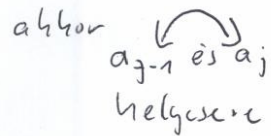 akkor
a_{j-1} és a_j
helycsere